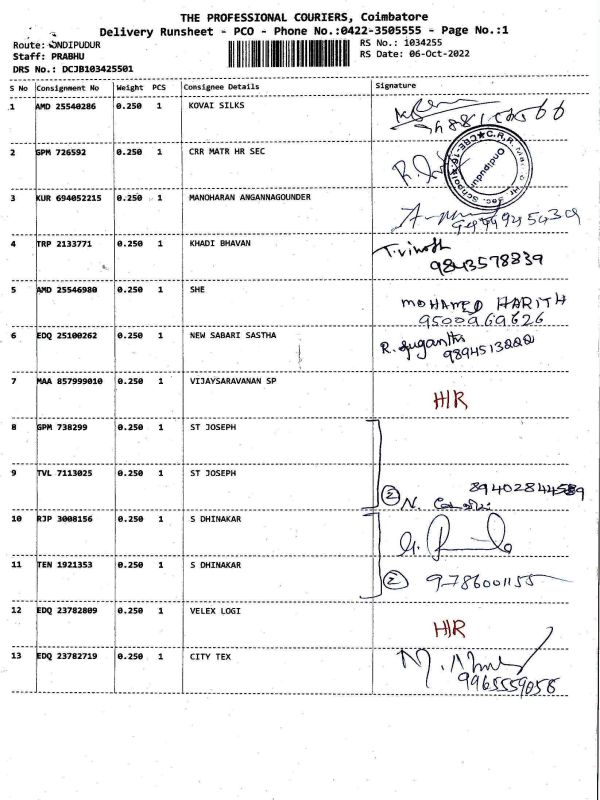 THE PROFESSIONAL COURIERS, Coimbatore
Delivery Runsheet - PCO - Phone No.:0422-3505555 - Page No.:1
Route: ONDIPUDUR
RS No.: 1034255
Staff: PRABHU
RS Date: 06-Oct-2022
DRS No.: DCJB103425501
S No Consignment No Weight PCS Consignee Details Signature
1 AMD 25540286 0.250 1 KOVAI SILKS
2 GPM 726592 0.250 1 CRR MATR HR SEC
3 KUR 694052215 0.250 1 MANOHARAN ANGANNAGOUNDER
4 TRP 2133771 0.250 1 KHADI BHAVAN T.vinoth
9843578839
5 AMD 25546980 0.250 1 SHE MOHAMED HARITH
9500969626
6 EDQ 25100262 0.250 1 NEW SABARI SASTHA R. Suganthi
9894513222
7 MAA 857999010 0.250 1 VIJAYSARAVANAN SP H/R
8 GPM 738299 0.250 1 ST JOSEPH
9 TVL 7113025 0.250 1 ST JOSEPH
② N.
10 RJP 3008156 0.250 1 S DHINAKAR
11 TEN 1921353 0.250 1 S DHINAKAR
② 9786001155
12 EDQ 23782809 0.250 1 VELEX LOGI H/R
13 EDQ 23782719 0.250 1 CITY TEX
9965559056